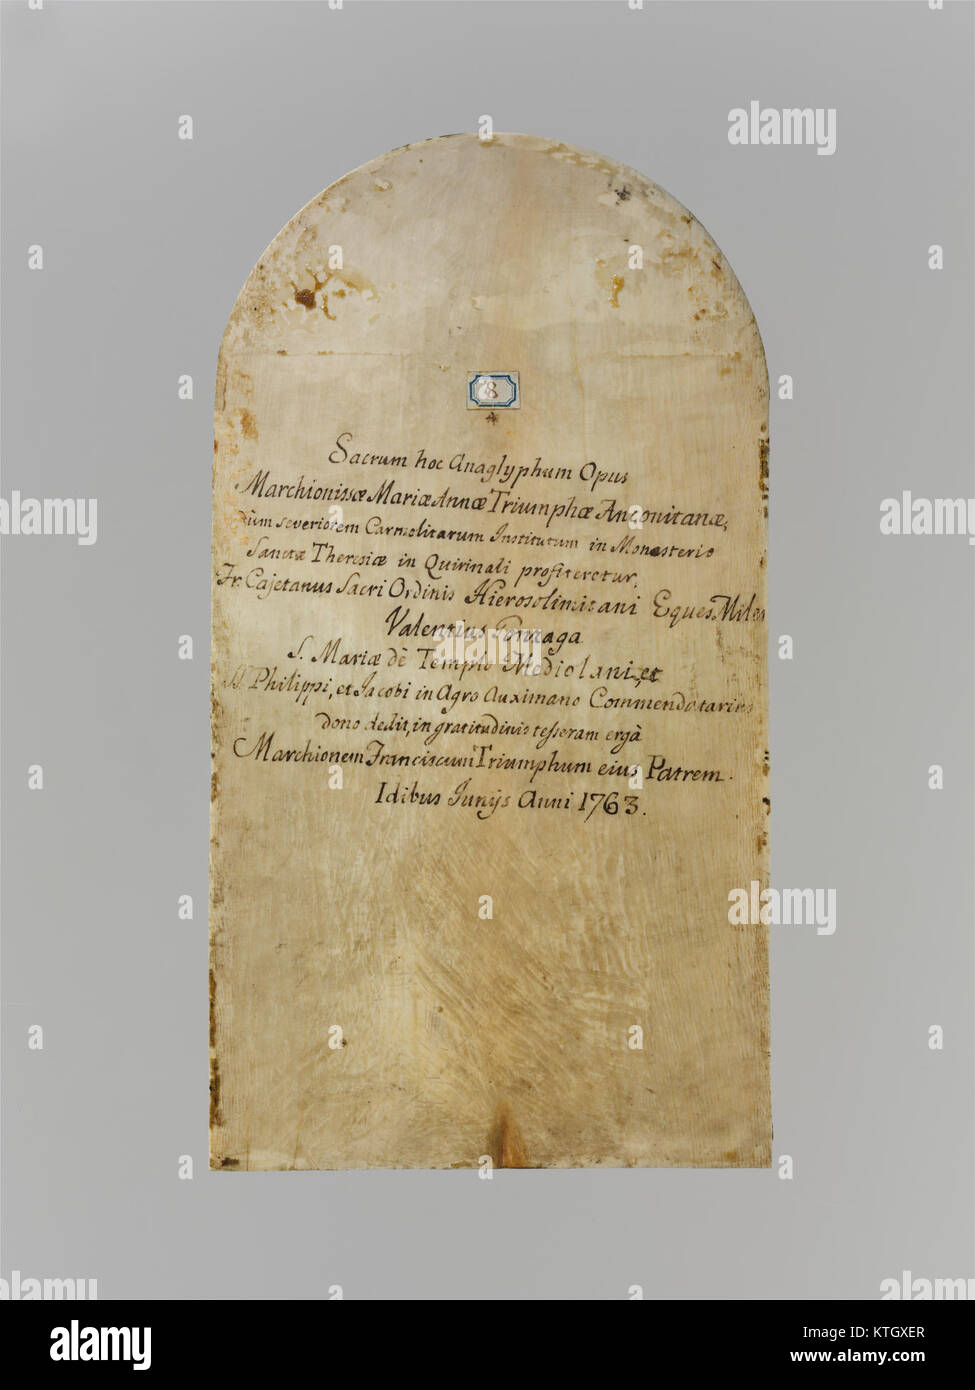 8
Sacrum hoc Anaglyphum Opus
Marchionissæ Mariæ Annæ Triumphæ Anconitanæ,
Dum severiorem Carmelitarum Institutum in Monasterio
Sanctæ Theresiæ in Quirinali profiteretur,
Fr. Cajetanus Sacri Ordinis Hierosolimitani Eques Miles
Valentius Gonzaga
S. Mariæ dè Templo Mediolani, et
SS. Philippi, et Jacobi in Agro Auximano Commendatarius
dono dedit, in gratitudinis tesseram ergà
Marchionem Franciscum Triumphum eius Patrem.
Idibus Junijs Anni 1763.
alamy
Image ID: KTGXER
www.alamy.com